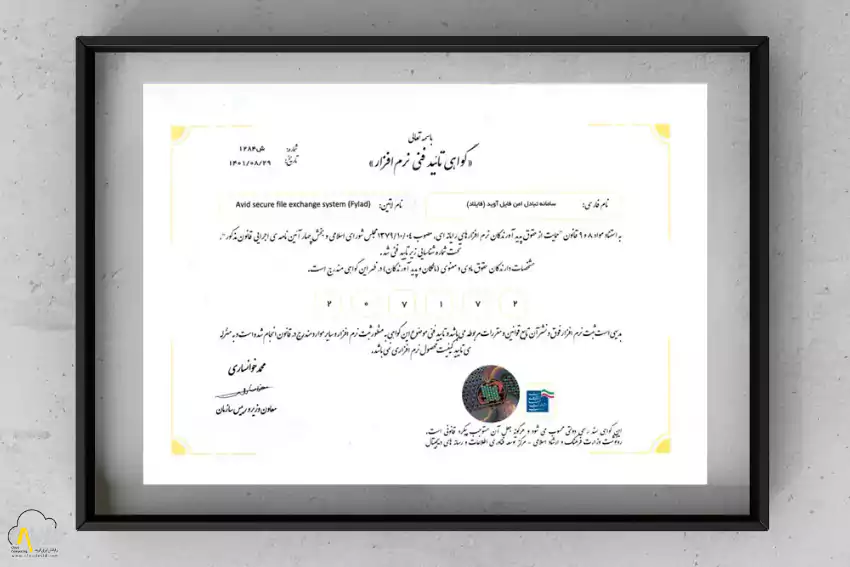 باسمه تعالی
شماره: ش۱۲۸۴
«گواهی تائید فنی نرم افزار»
تاریخ: ۱۴۰۱/۰۸/۲۹
نام فارسی: سامانه تبادل امن فایل آوید (فایلاد)
نام لاتین: Avid secure file exchange system (Fylad)
به استناد مواد ۸ و ۹ قانون "حمایت از حقوق پدید آورندگان نرم افزارهای رایانه ای، مصوب ۱۳۷۹/۱۰/۰۴ مجلس شورای اسلامی و بخش چهار آئین نامه ی اجرایی قانون مذکور"،
تحت شماره شناسایی زیر تایید فنی شد.
مشخصات دارندگان حقوق مادی و معنوی (مالکان و پدید آورندگان) در ظهر این گواهی مندرج است.
۲ ۰ ۷ ۱ ۷ ۲
بدیهی است ثبت نرم افزار فوق و نشر آن تابع قوانین و مقررات مربوطه می باشد و تایید فنی موضوع این گواهی به منظور ثبت نرم افزار و سایر موارد مندرج در قانون انجام شده است و به منزله
ی تایید کیفیت محصول نرم افزاری نمی باشد.
محمد خوانساری
معاون وزیر و رییس سازمان
این گواهی سند رسمی دولتی محسوب می شود و هرگونه جعل آن مستوجب پیگرد قانونی است.
رونوشت وزارت فرهنگ و ارشاد اسلامی - مرکز توسعه فناوری اطلاعات و رسانه های دیجیتال